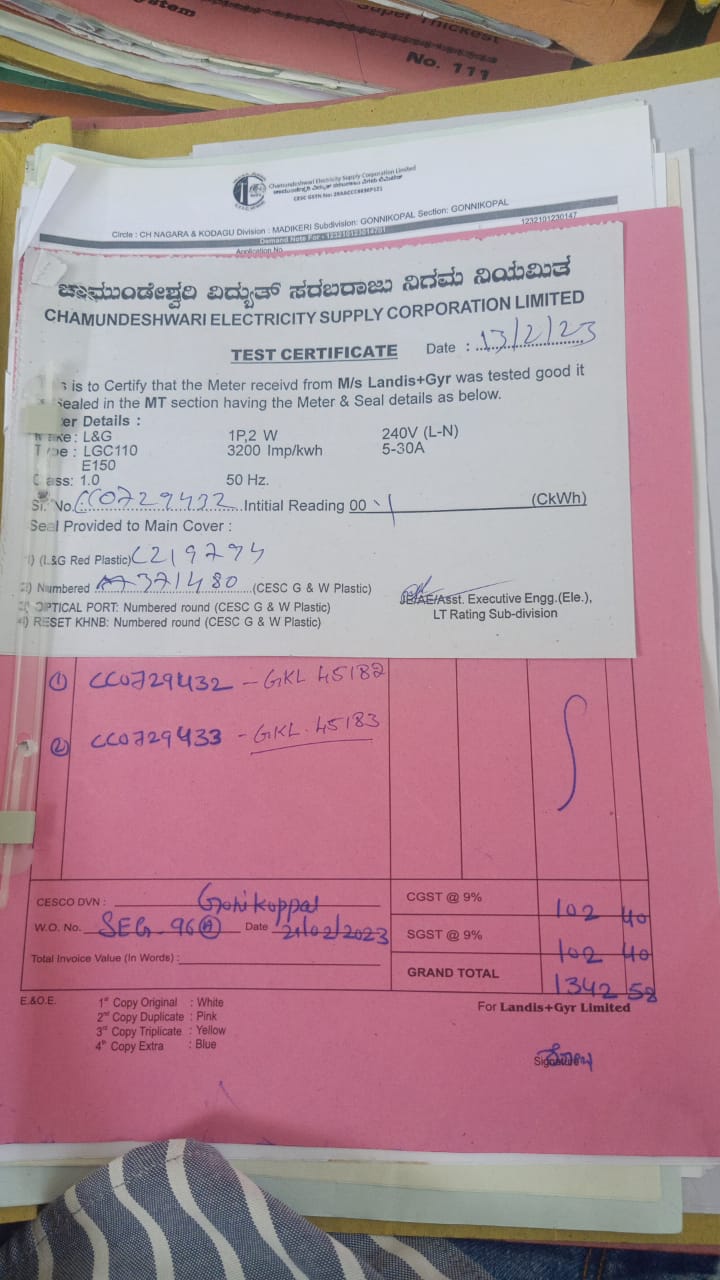 ystem
Super Thickest
No. 111
Chamundeshwari Electricity Supply Corporation Limited
ಚಾಮುಂಡೇಶ್ವರಿ ವಿದ್ಯುತ್ ಸರಬರಾಜು ನಿಗಮ ನಿಯಮಿತ
CESC GSTN No:
Circle : CH NAGARA & KODAGU Division : MADIKERI Subdivision: GONNIKOPAL Section: GONNIKOPAL
Demand Note For -
1232101230147
Application No
ಚಾಮುಂಡೇಶ್ವರಿ ವಿದ್ಯುತ್ ಸರಬರಾಜು ನಿಗಮ ನಿಯಮಿತ
CHAMUNDESHWARI ELECTRICITY SUPPLY CORPORATION LIMITED
TEST CERTIFICATE Date : 13/2/23
s is to Certify that the Meter receivd from M/s Landis+Gyr was tested good it
Sealed in the MT section having the Meter & Seal details as below.
er Details :
ke : L&G 1P,2 W 240V (L-N)
pe : LGC110 3200 Imp/kwh 5-30A
E150
ass: 1.0 50 Hz.
Sr. No. CC0729432 Intitial Reading 00 (CkWh)
Seal Provided to Main Cover :
1) (L&G Red Plastic) C219794
2) Numbered AA371480 (CESC G & W Plastic)
3) OPTICAL PORT: Numbered round (CESC G & W Plastic)
4) RESET KHNB: Numbered round (CESC G & W Plastic)
JE/AE/Asst. Executive Engg.(Ele.),
LT Rating Sub-division
① CC0729432 - GKL 45182
② CC0729433 - GKL. 45183
CESCO DVN : Gonikoppal
W.O. No. SEG-96 Ⓐ Date 21/02/2023
Total Invoice Value (In Words) :
CGST @ 9% 102 40
SGST @ 9% 102 40
GRAND TOTAL 1342 58
E.&O.E.
1st Copy Original : White
2nd Copy Duplicate : Pink
3rd Copy Triplicate : Yellow
4th Copy Extra : Blue
For Landis+Gyr Limited
Signature